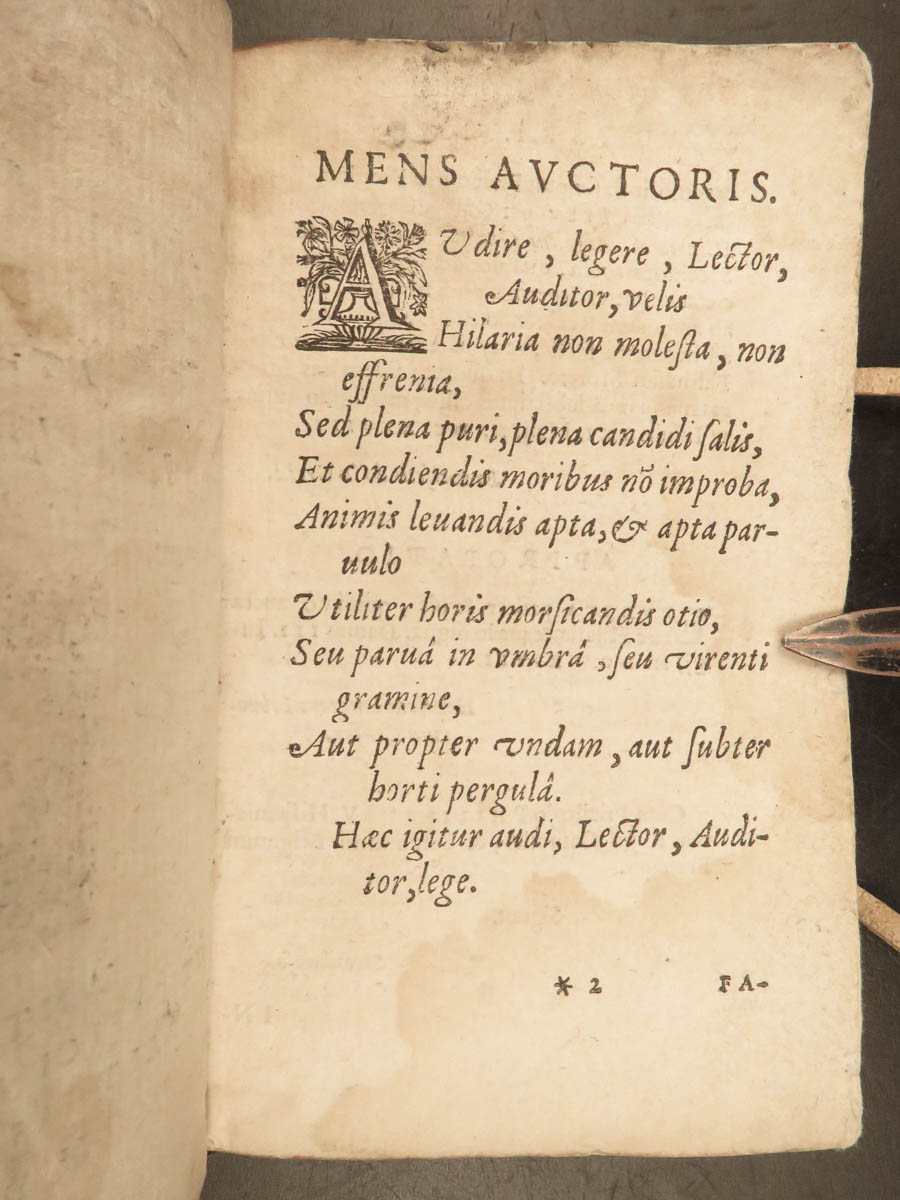 MENS AVCTORIS.
AUdire, legere, Lector,
Auditor, velis
Hilaria non molesta, non
effrenia,
Sed plena puri, plena candidi salis,
Et condiendis moribus nõ improba,
Animis leuandis apta, & apta par-
uulo
Utiliter horis morsicandis otio,
Seu paruâ in vmbrâ, seu virenti
gramine,
Aut propter vndam, aut subter
horti pergulâ.
Hæc igitur audi, Lector, Audi-
tor, lege.
* 2 FA-